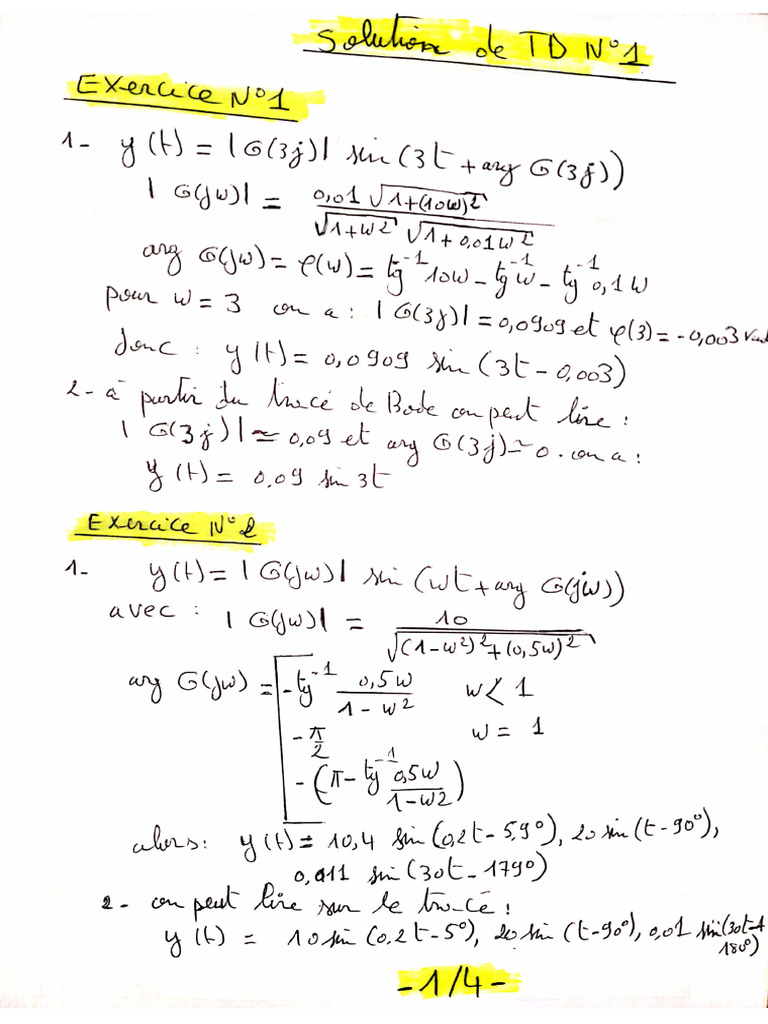 Solution de TD N°1
Exercice N°1
1- y(t) = |G(3j)| sin(3t + arg G(3j))
|G(jw)| = 0,01 √1+(10w)² / √1+w² √1+0,01w²
arg G(jw) = φ(w) = tg⁻¹ 10w - tg⁻¹ w - tg⁻¹ 0,1w
pour w = 3 on a : |G(3j)| = 0,0909 et φ(3) = -0,003
donc : y(t) = 0,0909 sin(3t - 0,003)
2- à partir du tracé de Bode on peut lire :
|G(3j)| ≃ 0,09 et arg G(3j) ≃ 0 . on a :
y(t) = 0,09 sin 3t
Exercice N°2
1- y(t) = |G(jw)| sin(wt + arg G(jw))
avec : |G(jw)| = 10 / √(1-w²)²+(0,5w)²
arg G(jw) = -tg⁻¹ 0,5w / 1-w² w < 1
-π/2 w = 1
-(π - tg⁻¹ 0,5w / 1-w2)
alors : y(t) = 10,4 sin(0,2t - 5,9°), 20 sin(t-90°),
0,011 sin(30t - 179°)
2- on peut lire sur le tracé :
y(t) = 10 sin(0.2t-5°), 20 sin(t-90°), 0,01 sin(30t-
180°)
-1/4-